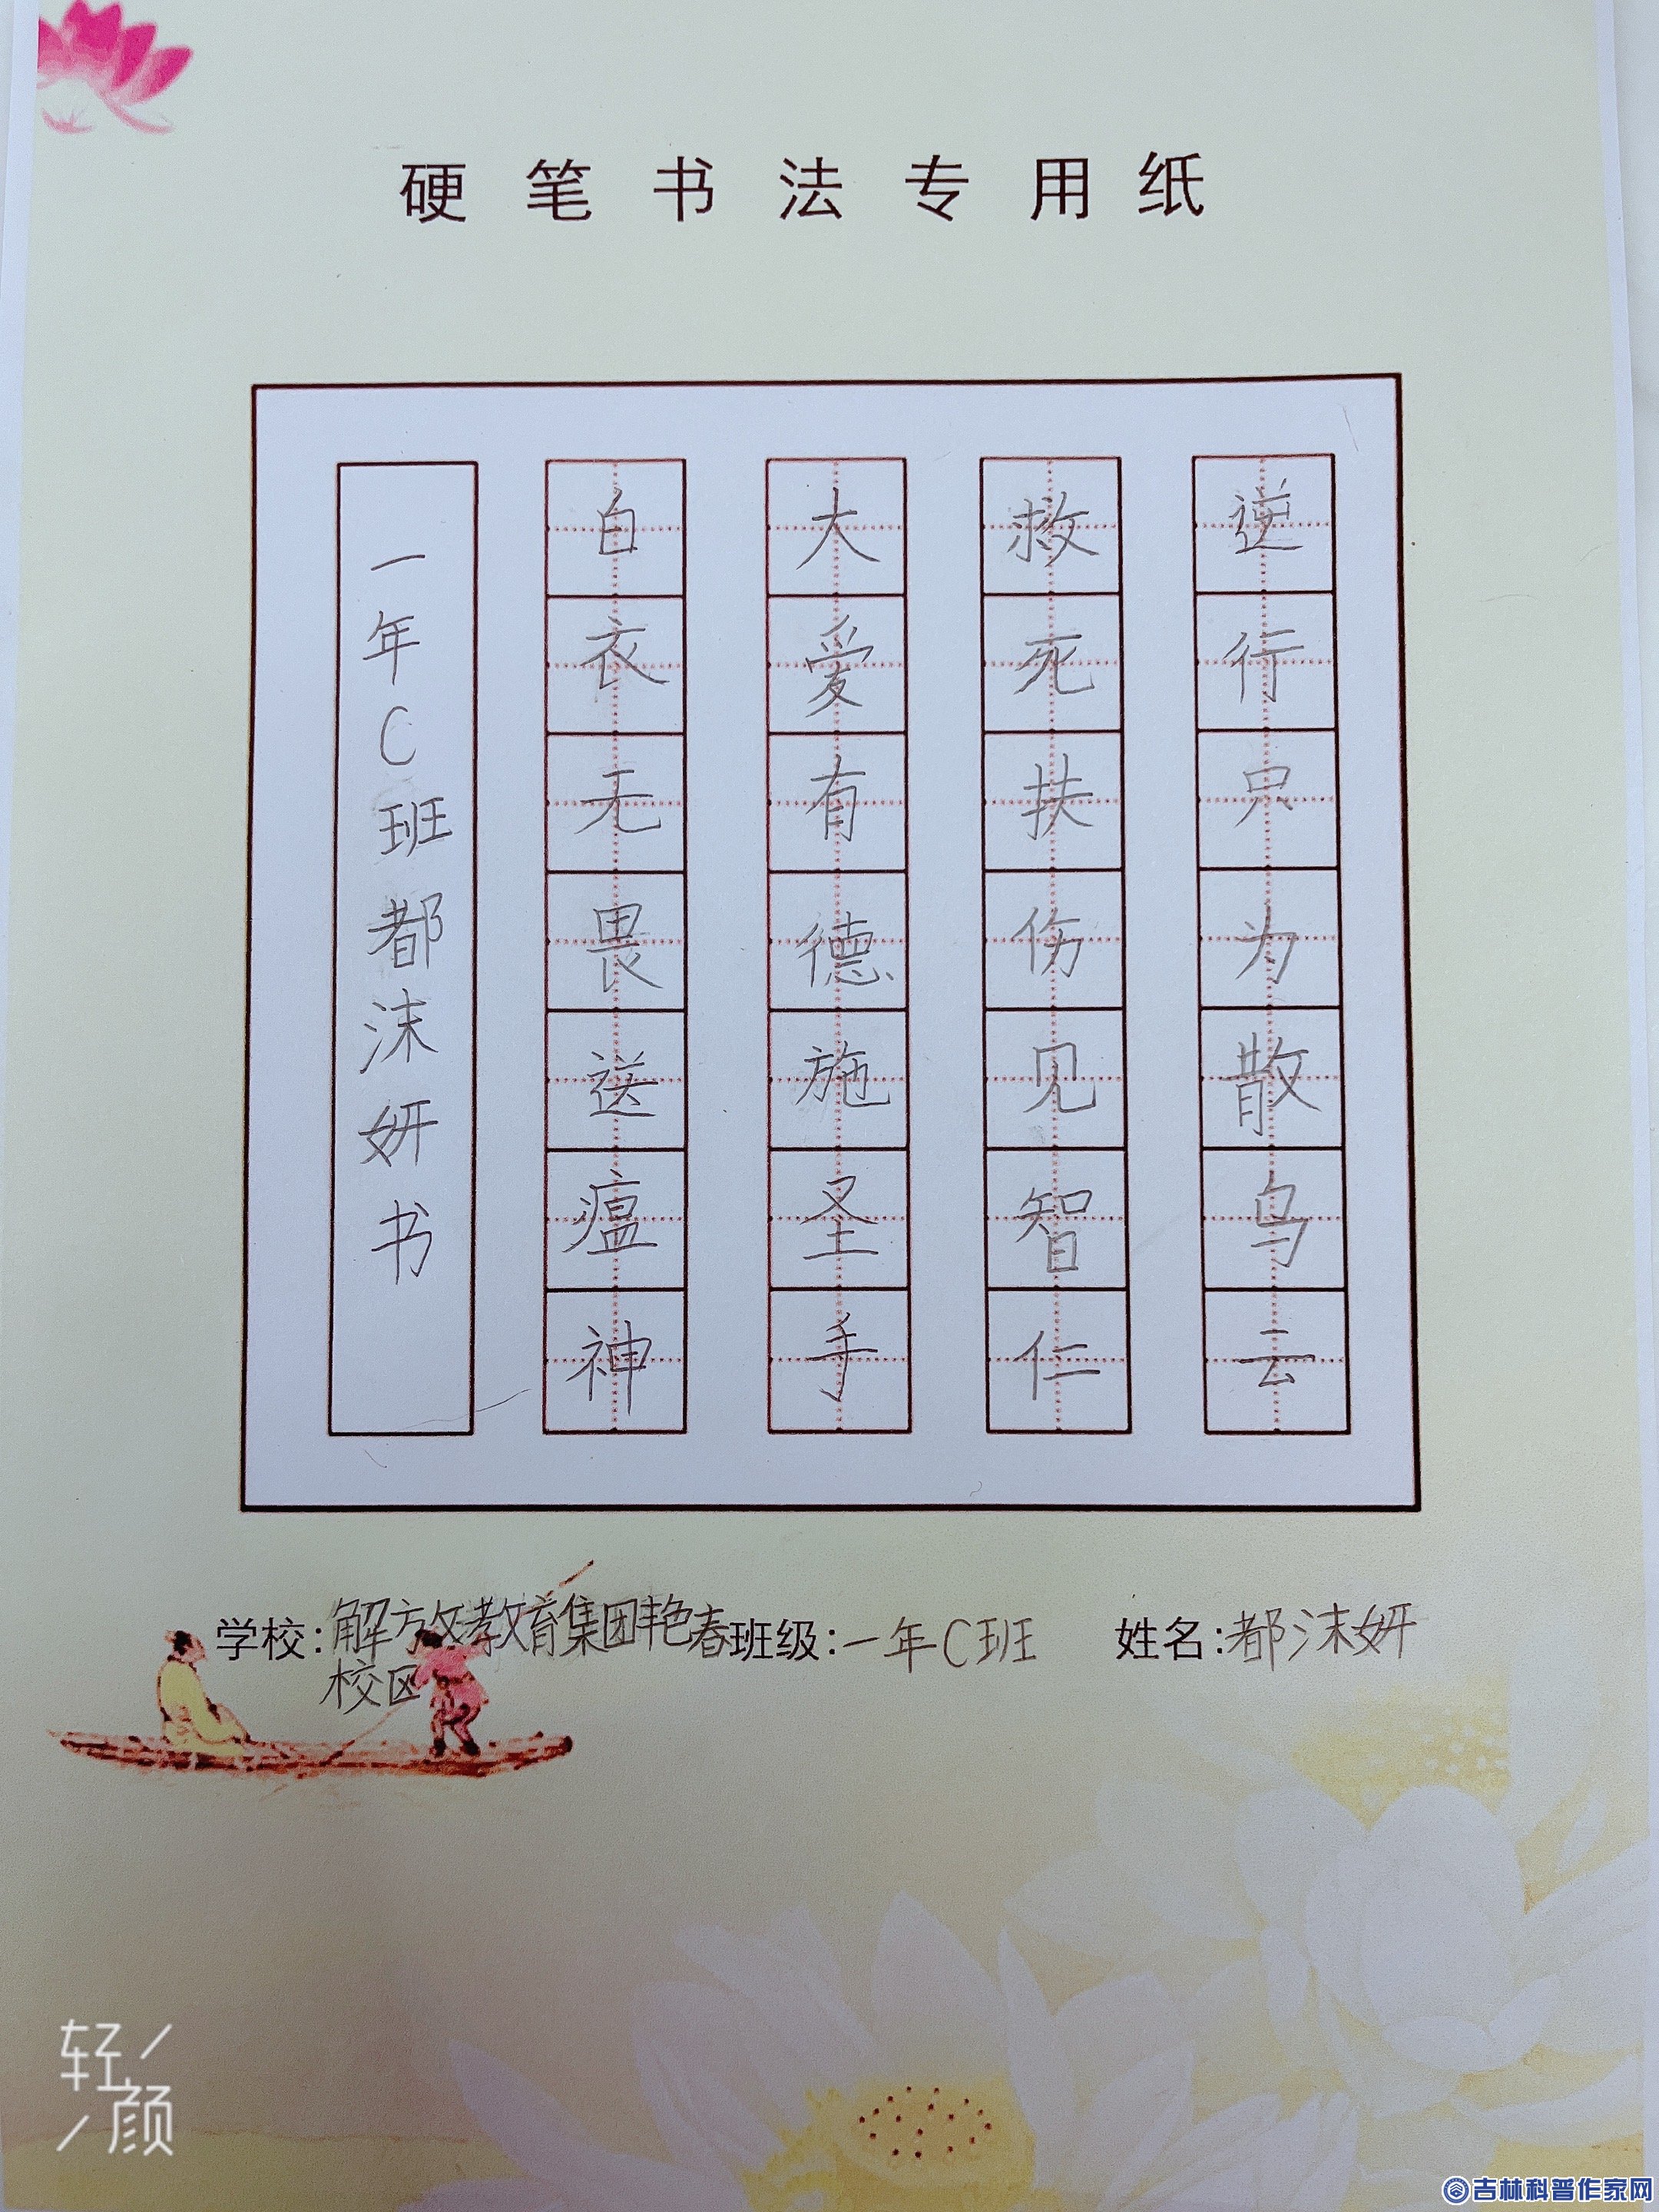 硬笔书法专用纸
逆行只为散乌云
救死扶伤见智仁
大爱有德施圣手
白衣无畏送瘟神
一年C班都沫妍书
学校：解放教育集团艳春校区
班级：一年C班
姓名：都沫妍
轻颜
吉林科普作家网